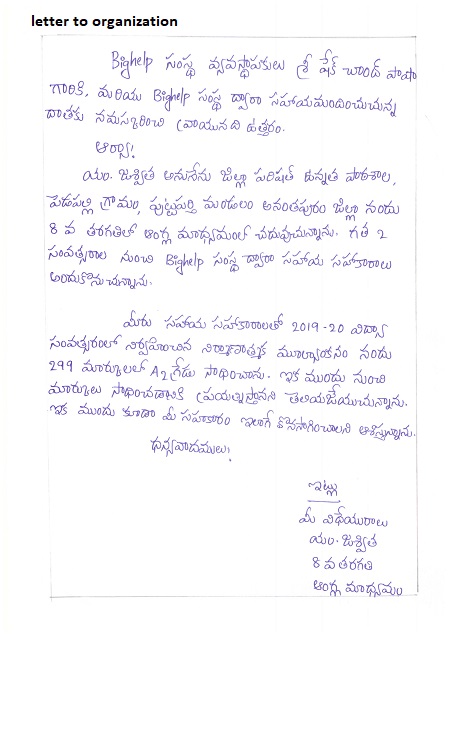 letter to organization
Bighelp సంస్థ వ్యవస్థాపకులు శ్రీ షేక్ చాంద్ పాషా
గారికి, మరియు Bighelp సంస్థ ద్వారా సహాయమందించుచున్న
దాతకు నమస్కరించి వ్రాయునది ఉత్తరం.
ఆర్యా!
యం. జశ్విత అనునేను జిల్లా పరిషత్ ఉన్నత పాఠశాల,
పెడపల్లి గ్రామం, పుట్టపర్తి మండలం అనంతపురం జిల్లా నందు
8 వ తరగతిలో ఆంగ్ల మాధ్యమంలో చదువుచున్నాను. గత 2
సంవత్సరాల నుంచి Bighelp సంస్థ ద్వారా సహాయ సహకారాలు
అందుకొనుచున్నాను.
మీరు సహాయ సహకారాలతో 2019-20 విద్యా
సంవత్సరంలో నిర్వహించిన నిర్మాణాత్మక మూల్యాంకనం నందు
299 మార్కులలో A2 గ్రేడు సాధించాను. ఇక ముందు నుంచి
మార్కులు సాధించడానికి ప్రయత్నిస్తానని తెలియజేయుచున్నాను.
ఇక ముందు కూడా మీ సహకారం ఇలాగే కొనసాగించాలని ఆశిస్తున్నాను.
ధన్యవాదములు!
ఇట్లు
మీ విధేయురాలు
యం. జశ్విత
8 వ తరగతి
ఆంగ్ల మాధ్యమం